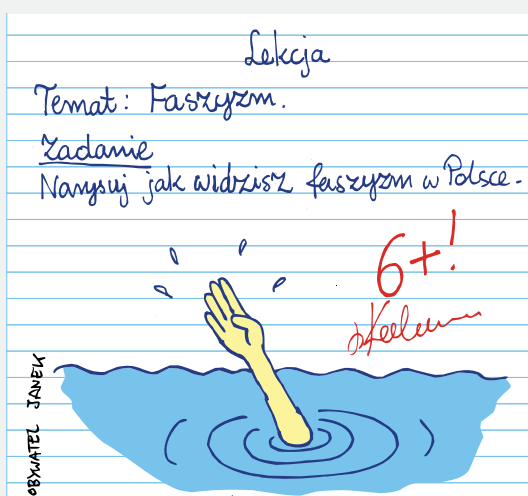 Lekcja
Temat: Faszyzm.
Zadanie
Narysuj jak widzisz faszyzm w Polsce.
6+!
OBYWATEL JANEK